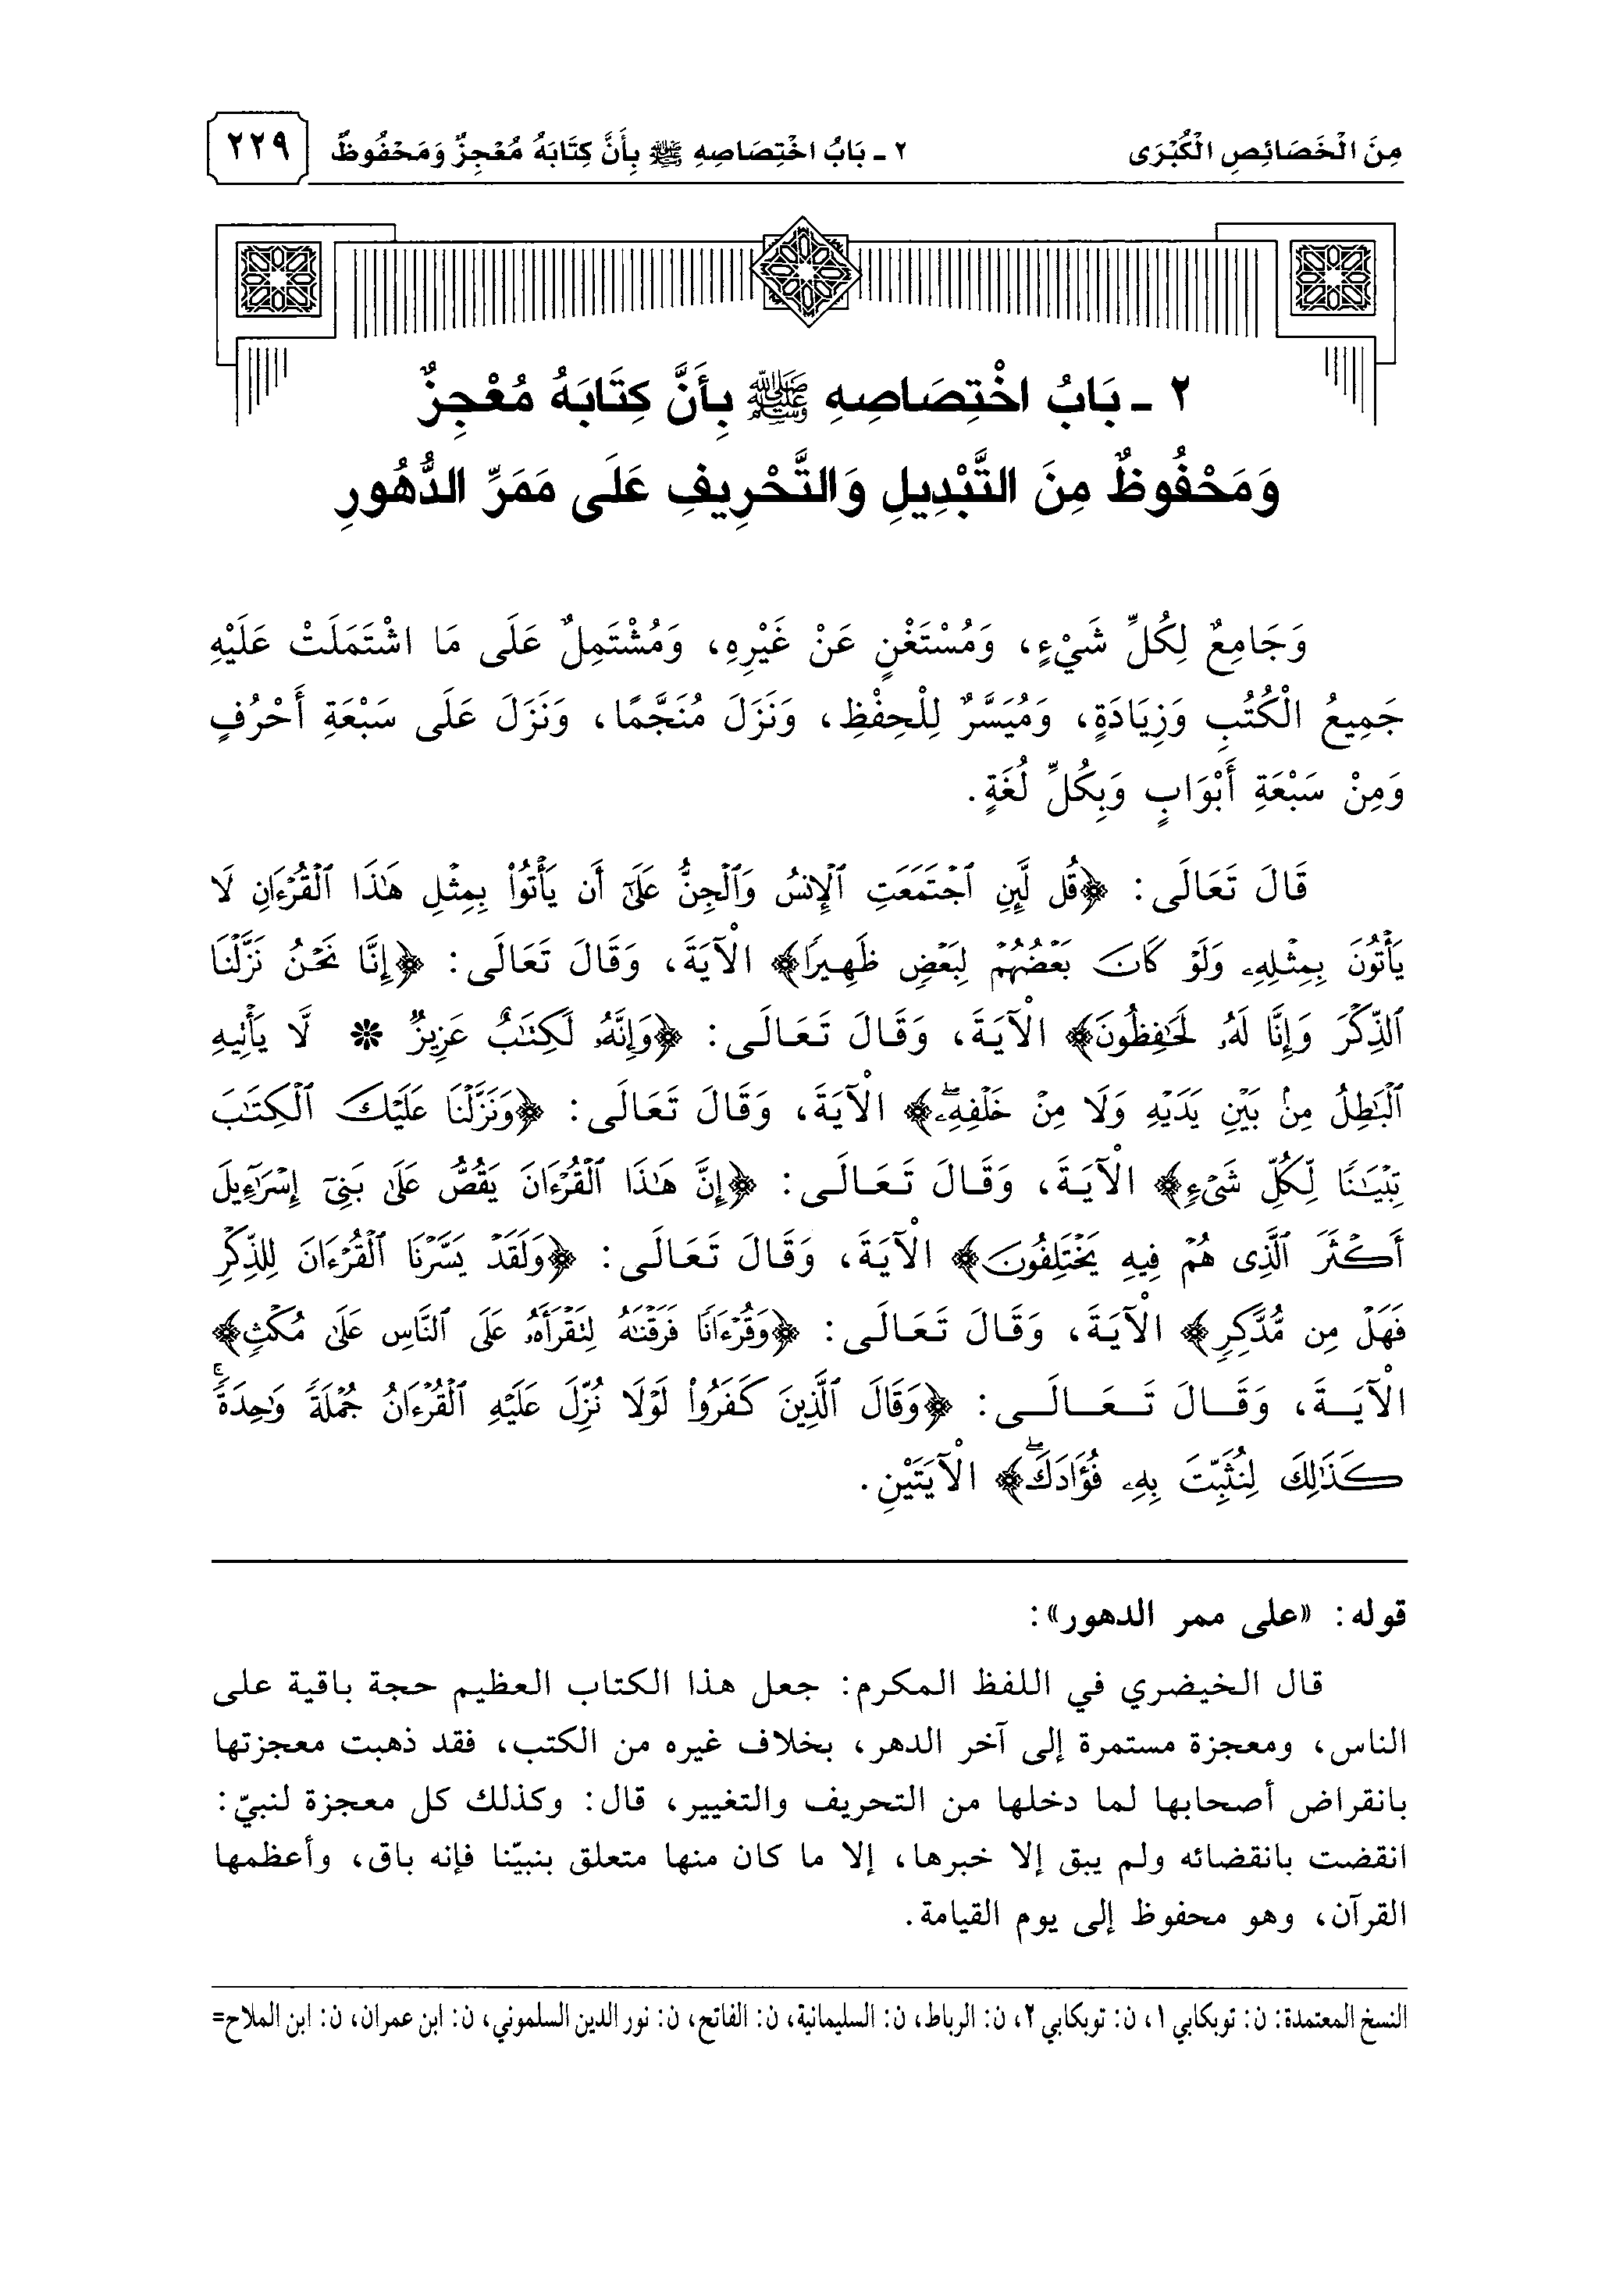 مِنَ الْخَصَائِصِ الْكُبْرَى
٢ ـ بَابُ اخْتِصَاصِهِ ﷺ بِأَنَّ كِتَابَهُ مُعْجِزٌ وَمَحْفُوظٌ
٢٢٩
٢ ـ بَابُ اخْتِصَاصِهِ ﷺ بِأَنَّ كِتَابَهُ مُعْجِزٌ
وَمَحْفُوظٌ مِنَ التَّبْدِيلِ وَالتَّحْرِيفِ عَلَى مَمَرِّ الدُّهُورِ
وَجَامِعٌ لِكُلِّ شَيْءٍ، وَمُسْتَغْنٍ عَنْ غَيْرِهِ، وَمُشْتَمِلٌ عَلَى مَا اشْتَمَلَتْ عَلَيْهِ
جَمِيعُ الْكُتُبِ وَزِيَادَةٍ، وَمُيَسَّرٌ لِلْحِفْظِ، وَنَزَلَ مُنَجَّمًا، وَنَزَلَ عَلَى سَبْعَةِ أَحْرُفٍ
وَمِنْ سَبْعَةِ أَبْوَابٍ وَبِكُلِّ لُغَةٍ.
قَالَ تَعَالَى: ﴿قُل لَّئِنِ ٱجْتَمَعَتِ ٱلْإِنسُ وَٱلْجِنُّ عَلَىٰٓ أَن يَأْتُوا۟ بِمِثْلِ هَٰذَا ٱلْقُرْءَانِ لَا
يَأْتُونَ بِمِثْلِهِۦ وَلَوْ كَانَ بَعْضُهُمْ لِبَعْضٍ ظَهِيرًا﴾ الْآيَةَ، وَقَالَ تَعَالَى: ﴿إِنَّا نَحْنُ نَزَّلْنَا
ٱلذِّكْرَ وَإِنَّا لَهُۥ لَحَٰفِظُونَ﴾ الْآيَةَ، وَقَالَ تَعَالَى: ﴿وَإِنَّهُۥ لَكِتَٰبٌ عَزِيزٌ * لَّا يَأْتِيهِ
ٱلْبَٰطِلُ مِنۢ بَيْنِ يَدَيْهِ وَلَا مِنْ خَلْفِهِۦۖ﴾ الْآيَةَ، وَقَالَ تَعَالَى: ﴿وَنَزَّلْنَا عَلَيْكَ ٱلْكِتَٰبَ
تِبْيَٰنًا لِّكُلِّ شَىْءٍ﴾ الْآيَةَ، وَقَالَ تَعَالَى: ﴿إِنَّ هَٰذَا ٱلْقُرْءَانَ يَقُصُّ عَلَىٰ بَنِىٓ إِسْرَٰٓءِيلَ
أَكْثَرَ ٱلَّذِى هُمْ فِيهِ يَخْتَلِفُونَ﴾ الْآيَةَ، وَقَالَ تَعَالَى: ﴿وَلَقَدْ يَسَّرْنَا ٱلْقُرْءَانَ لِلذِّكْرِ
فَهَلْ مِن مُّدَّكِرٍ﴾ الْآيَةَ، وَقَالَ تَعَالَى: ﴿وَقُرْءَانًا فَرَقْنَٰهُ لِتَقْرَأَهُۥ عَلَى ٱلنَّاسِ عَلَىٰ مُكْثٍ﴾
الْآيَةَ، وَقَالَ تَعَالَى: ﴿وَقَالَ ٱلَّذِينَ كَفَرُوا۟ لَوْلَا نُزِّلَ عَلَيْهِ ٱلْقُرْءَانُ جُمْلَةً وَٰحِدَةًۚ
كَذَٰلِكَ لِنُثَبِّتَ بِهِۦ فُؤَادَكَۖ﴾ الْآيَتَيْنِ.
قوله: «على ممر الدهور»:
قال الخيضري في اللفظ المكرم: جعل هذا الكتاب العظيم حجة باقية على
الناس، ومعجزة مستمرة إلى آخر الدهر، بخلاف غيره من الكتب، فقد ذهبت معجزتها
بانقراض أصحابها لما دخلها من التحريف والتغيير، قال: وكذلك كل معجزة لنبيّ:
انقضت بانقضائه ولم يبق إلا خبرها، إلا ما كان منها متعلق بنبيّنا فإنه باق، وأعظمها
القرآن، وهو محفوظ إلى يوم القيامة.
النسخ المعتمدة: ن: توبكابي ١، ن: توبكابي ٢، ن: الرباط، ن: السليمانية، ن: الفاتح، ن: نور الدين السلموني، ن: ابن عمران، ن: ابن الملاح=